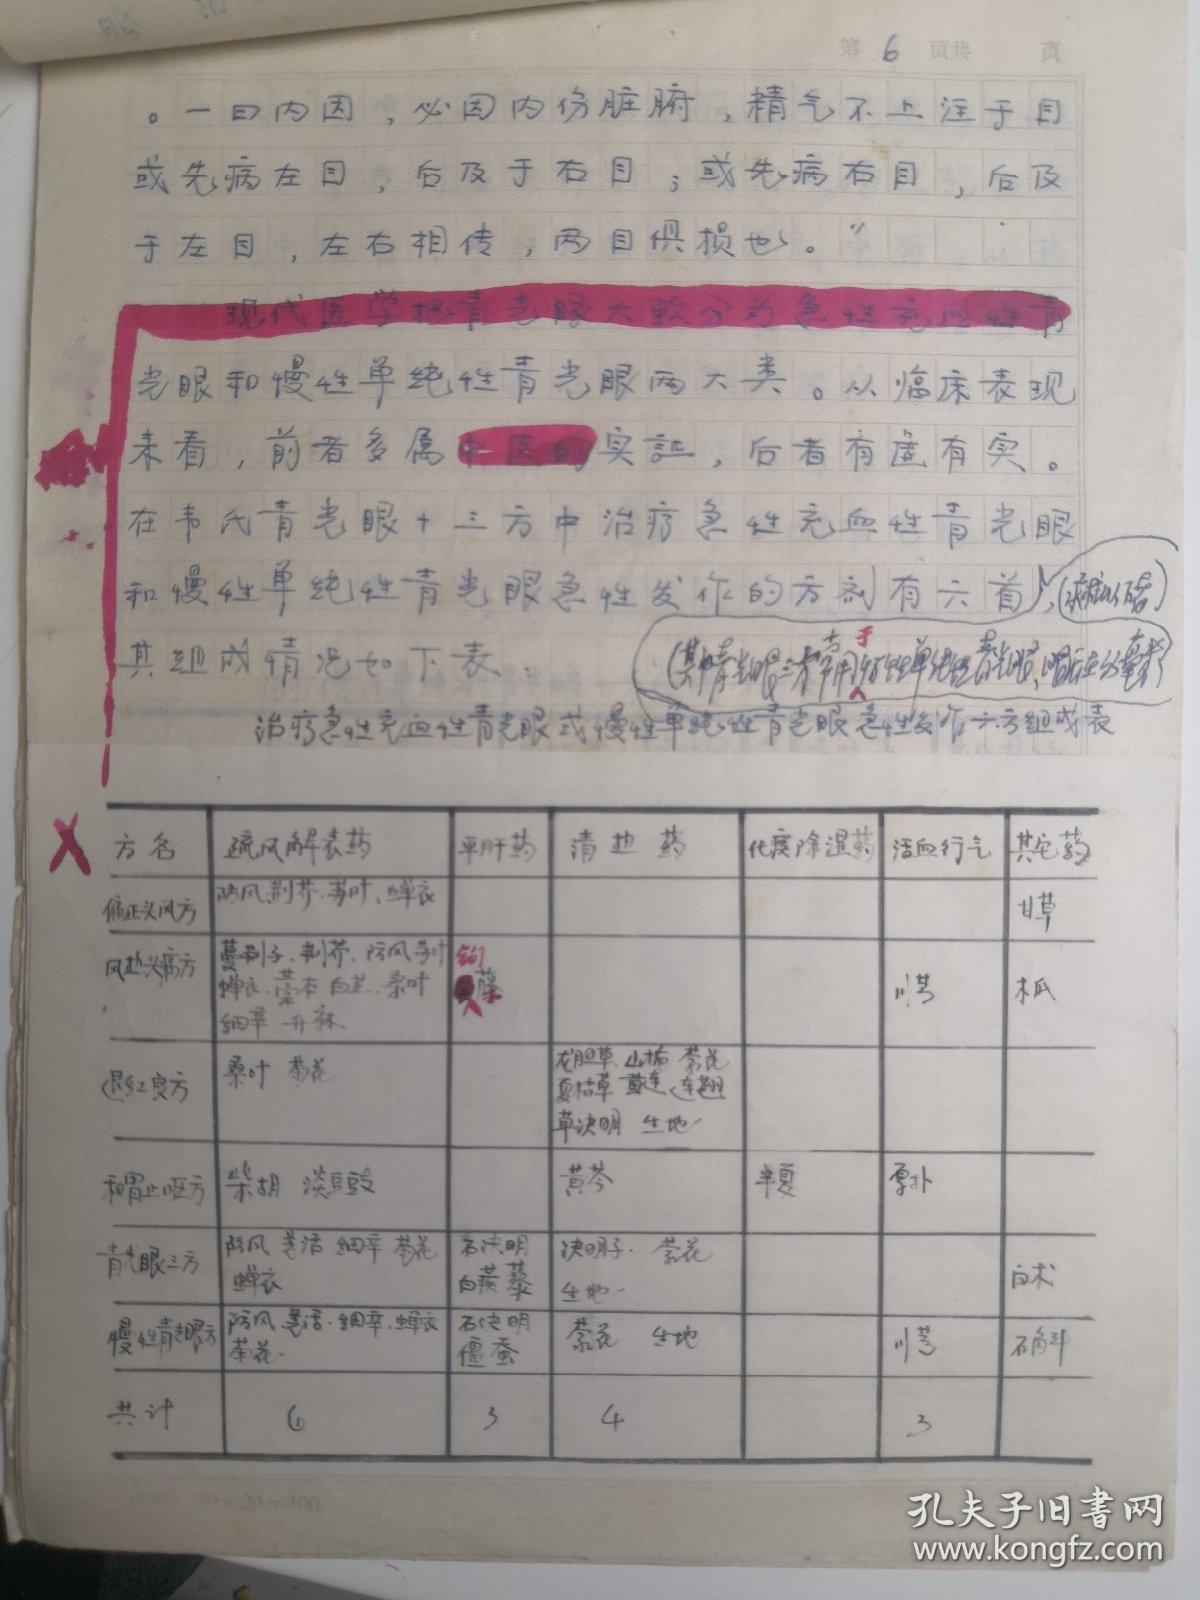 第 6 页共 页
。一曰内因，必因内伤脏腑，精气不上注于目
或先病左目，后及于右目；或先病右目，后及
于左目，左右相传，两目俱损也。”
现代医学把青光眼大致分为急性充血性青
光眼和慢性单纯性青光眼两大类。从临床表现
来看，前者多属中医的实証，后者有虚有实。
在韦氏青光眼十三方中治疗急性充血性青光眼
和慢性单纯性青光眼急性发作的方剂有六首，
其组成情况如下表：
治疗急性充血性青光眼或慢性单纯性青光眼急性发作六方组成表
X
方名 疏风解表药 平肝药 清热药 化痰除湿药 活血行气 其它药
偏正头风方 防风、荆芥、苏叶、蝉衣 甘草
风热头痛方 蔓荆子、荆芥、防风 苏叶 钩藤 川芎 木瓜
蝉衣、藁本 白芷、桑叶
细辛 升麻
退红良方 桑叶 菊花 龙胆草 山栀 密蒙花
夏枯草 黄连 连翘
草决明 生地
和胃止呕方 柴胡 淡豆豉 黄芩 半夏 厚朴
青光眼三方 防风 羌活 细辛 菊花 石决明 决明子 蒙花 白术
蝉衣 白蒺藜 生地
慢性青光眼方 防风 羌活 细辛 蝉衣 石决明 蒙花 生地 川芎 石斛
菊花 僵蚕
共计 6 3 4 3
20×20=400
孔夫子旧书网
www.kongfz.com